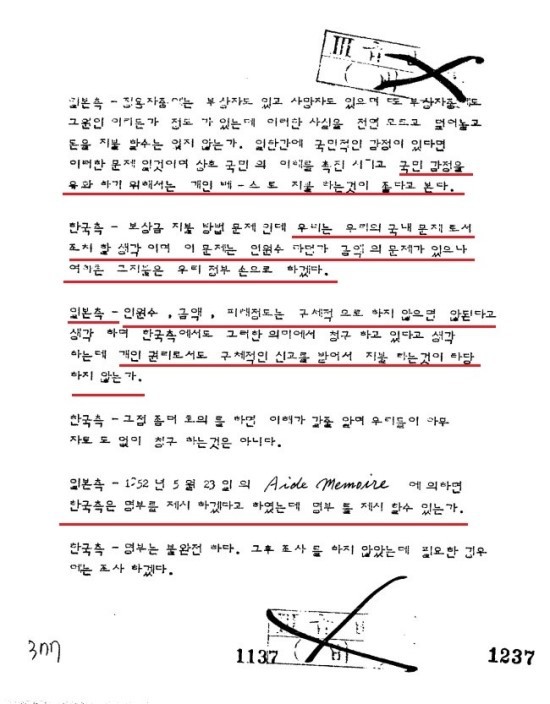 III급
일본측 - 징용자중에는 부상자도 있고 사망자도 있으며 또 부상자중에도
그원인 이라든가 정도 가 있는데 이러한 사실을 전연 모르고 덮어놓고
돈을 지불 할수는 없지 않는가. 일한간에 국민적인 감정이 있다면
이러한 문제 일것이며 상호 국민 의 이해를 촉진 시키고 국민 감정을
유화 하기 위해서는 개인 베-스로 지불 하는것이 좋다고 본다.
한국측 - 보상금 지불 방법 문제 인데 우리는 우리의 국내 문제 로서
조치 할 생각 이며 이 문제는 인원수 라던가 금액 의 문제가 있으나
여하튼 그지불은 우리 정부 손으로 하겠다.
일본측 - 인원수 , 금액 , 피해정도는 구체적 으로 하지 않으면 않된다고
생각 하며 한국측에서도 그러한 의미에서 청구 하고 있다고 생각
하는데 개인 권리로서도 구체적인 신고를 받어서 지불 하는것이 타당
하지 않는가.
한국측 - 그점 좀더 토의 를 하면 이해가 갈줄 알며 우리들이 아무
자료 도 없이 청구 하는것은 아니다.
일본측 - 1952 년 5 월 23 일 의 Aide Memoire 에 의하면
한국측은 명부를 제시 하겠다고 하였는데 명부 를 제시 할수 있는가.
한국측 - 명부는 불완전 하다. 그후 조사 를 하지 않았는데 필요한 경우
에는 조사 하겠다.
III
377 1137 1237